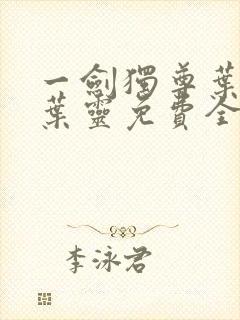 一劍獨尊葉
葉靈免費全
李泳君